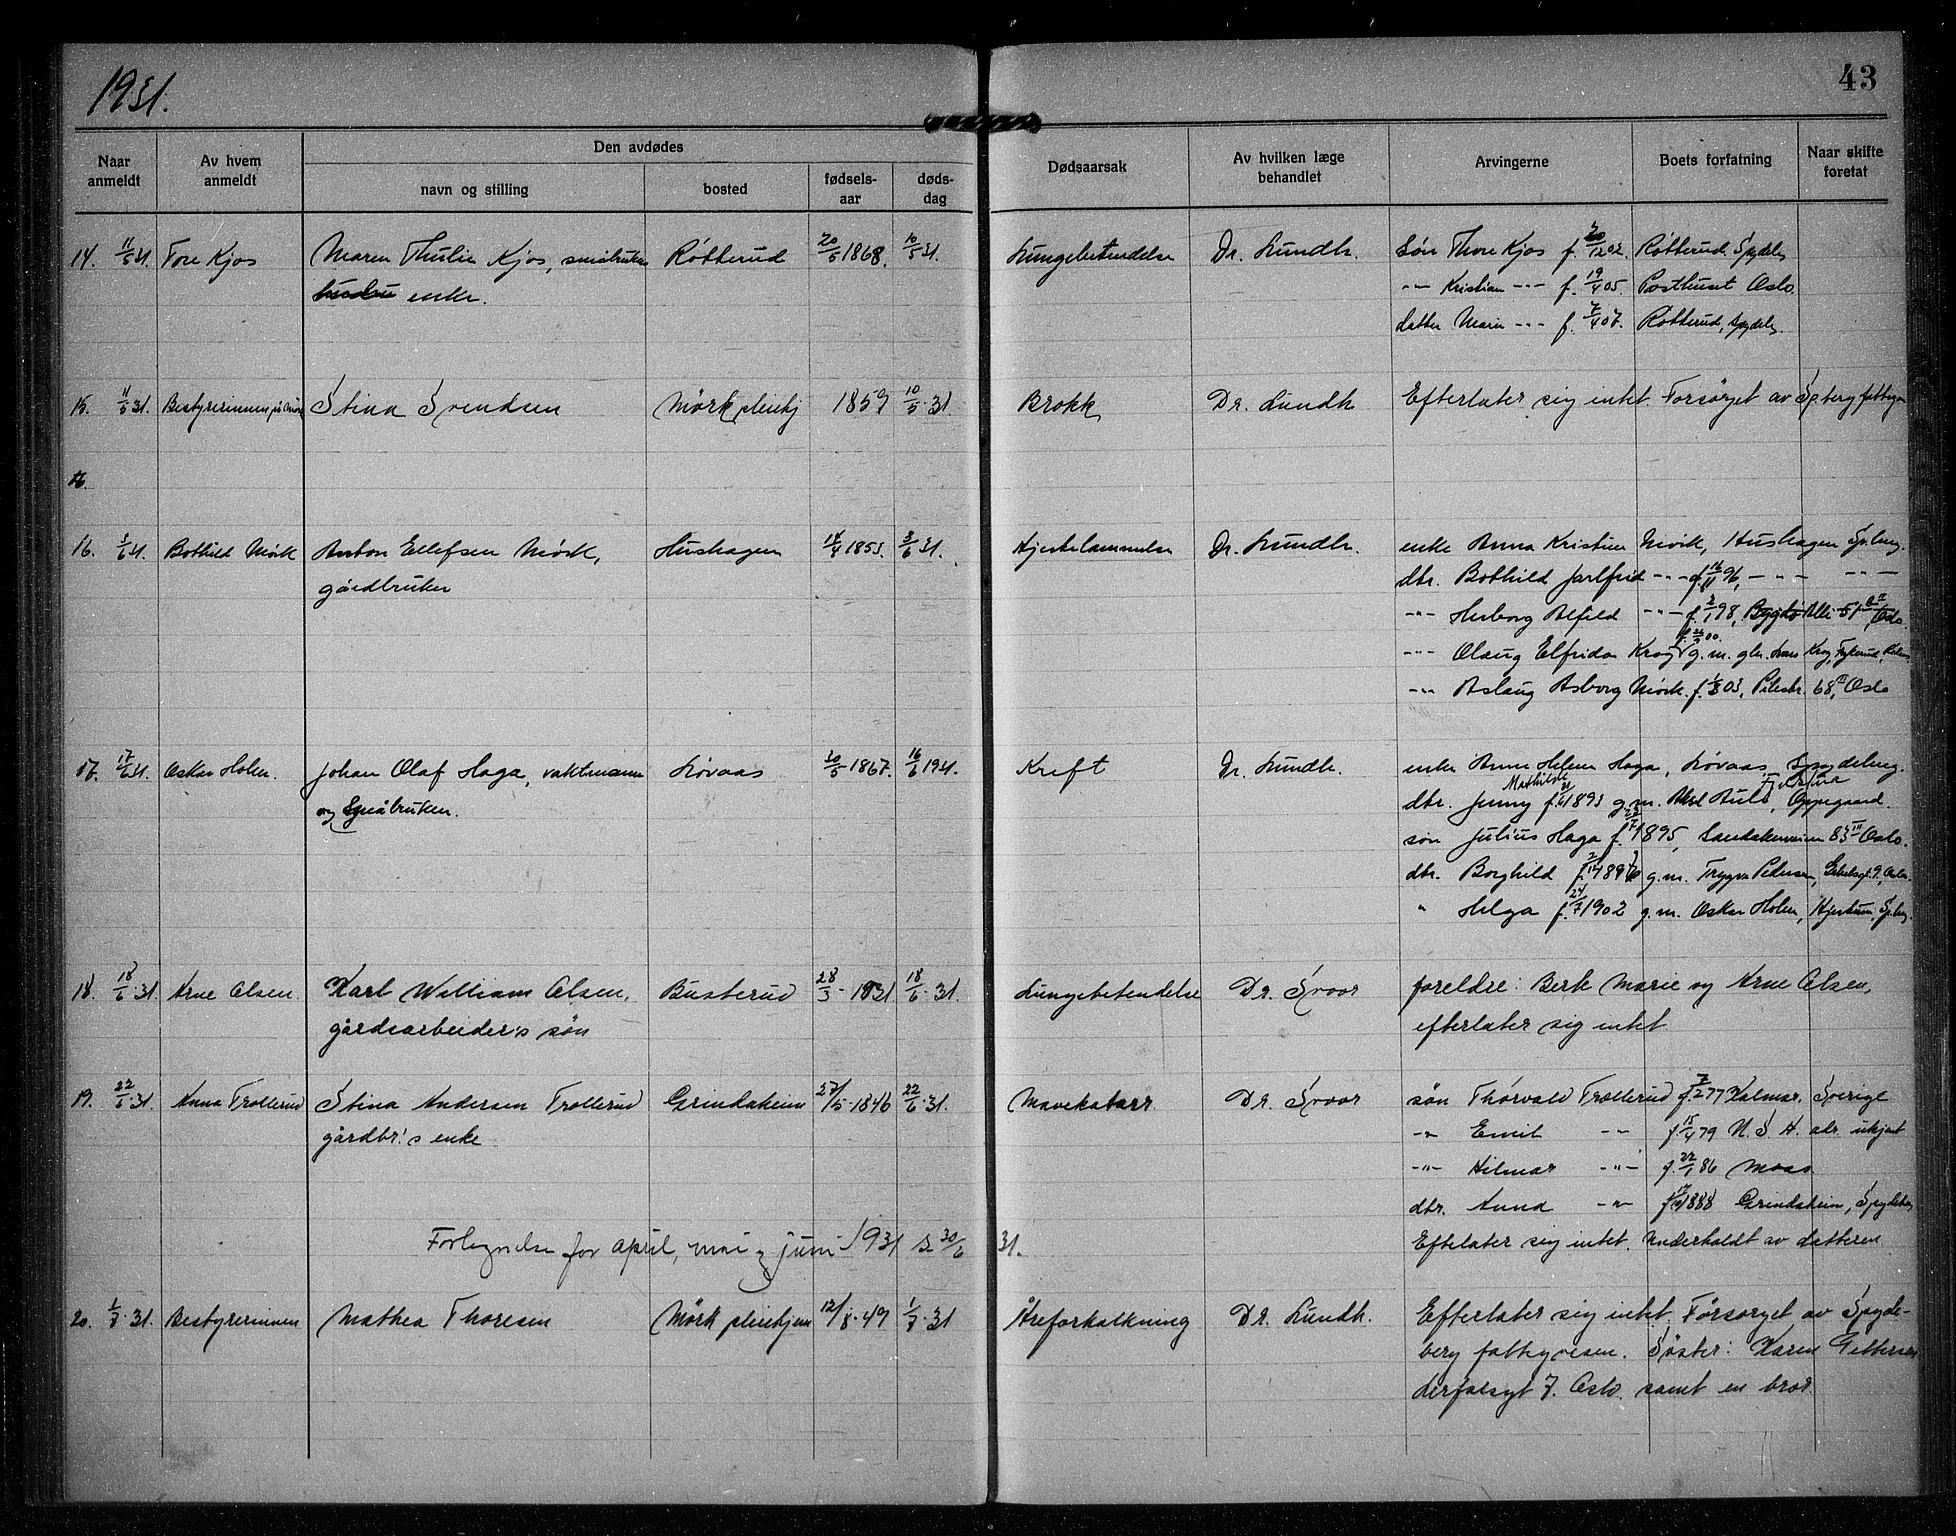 1931.
43
Naar anmeldt
Av hvem anmeldt
Den avdødes
navn og stilling
bosted
fødsels-aar
døds-dag
Dødsaarsak
Av hvilken læge behandlet
Arvingerne
Boets forfatning
Naar skifte foretat
14. 11/5 31. Tore Kjos Maren Thulie Kjos, småbruker Røtterud 20/5 1868. 10/5 31. Lungebetendelse Dr. Lundh. Søn Thore Kjos f. 20/12 02. Røtterud, Spydeb.
enke. -"- Kristian -"- f. 19/4 05. Posthuset Oslo.
datter Marie -"- f. 7/4 07. Røtterud, Spydeb.
15. 11/5 31. Bestyrerinnen på Stina Svendsen Mørk pleiehj 1859 10/5 31. Brokk Dr. Lundh Efterlater sig intet. Forsørget av Sp.berg fattigv.
16.
16. 3/6 31. Bothild Mørk Anton Ellefsen Mørk, Hushagen 14/4 1853. 3/6 31. Hjertelammelse Dr. Lundh. enke Anna Kristine Mørk, Hushagen Sp.berg.
gårdbruker dtr. Bothild Jarlfrid -"- f. 16/11 96, -"- -"-
-"- Herborg Alfild -"- f. 2/1 98, Bygdø Allé 51 Oslo.
-"- Olaug Elfrida Krog f. 00. g.m. gbr. Lars Krog,
-"- Aslaug Asborg Mørk. f. 1/3 03, Pilestr. 68, II Oslo
17. 17/6 31. Oskar Holen. Johan Olaf Haga, vaktmann Løvaas 20/5 1867. 16/6 1931. Kreft Dr. Lundh. enke Anne Helene Haga, Løvaas, Spydeberg.
og Småbruker. dtr. Jenny Mathilde f. 1893 g.m. Aksel Oppegaard.
søn Julius Haga f. 1895, Sandakerveien 83 III Oslo.
dtr. Borghild g.m. Trygve Pedersen, Oslo.
" Helga f. 24/7 1902 g.m. Oskar Holen, Sp.berg.
18. 18/6 31. Arne Olsen. Karl William Olsen, Busterud 28/3 - 1931 18/6 31. Lungebetendelse Dr. Svoor foreldre: Berte Marie og Arne Olsen,
gårdsarbeider's søn efterlater sig intet
19. 22/6 31. Anna Trollerud Stina Andersen Trollerud Grindaheim 27/5 - 1846 22/6 31. Mavekatarr. Dr. Svoor søn Thorvald Trollerud f. 7/2 77 Kalmar, Sverige
gårdbr.'s enke -"- Emil -"- f. 15/4 79 N. S. A. adr. ukjent
-"- Hilmar -"- f. 22/1 86 Moss
dtr. Anna -"- 1888 Grindaheim, Spydeberg
Efterlater sig intet. Underholdt av datteren
Fortegnelse for april, mai og juni 1931 s. 30/6 31.
20. 1/7 31. Bestyrerinnen Mathea Thoresen Mørk pleiehjem 12/8 - 49 1/7 31 Åreforkalkning Dr. Lundh. Efterlater sig intet. Forsørget av Spyde-
berg fattigvesen. Søster: Karen Gettersen
gt 7. Oslo. samt en bror.